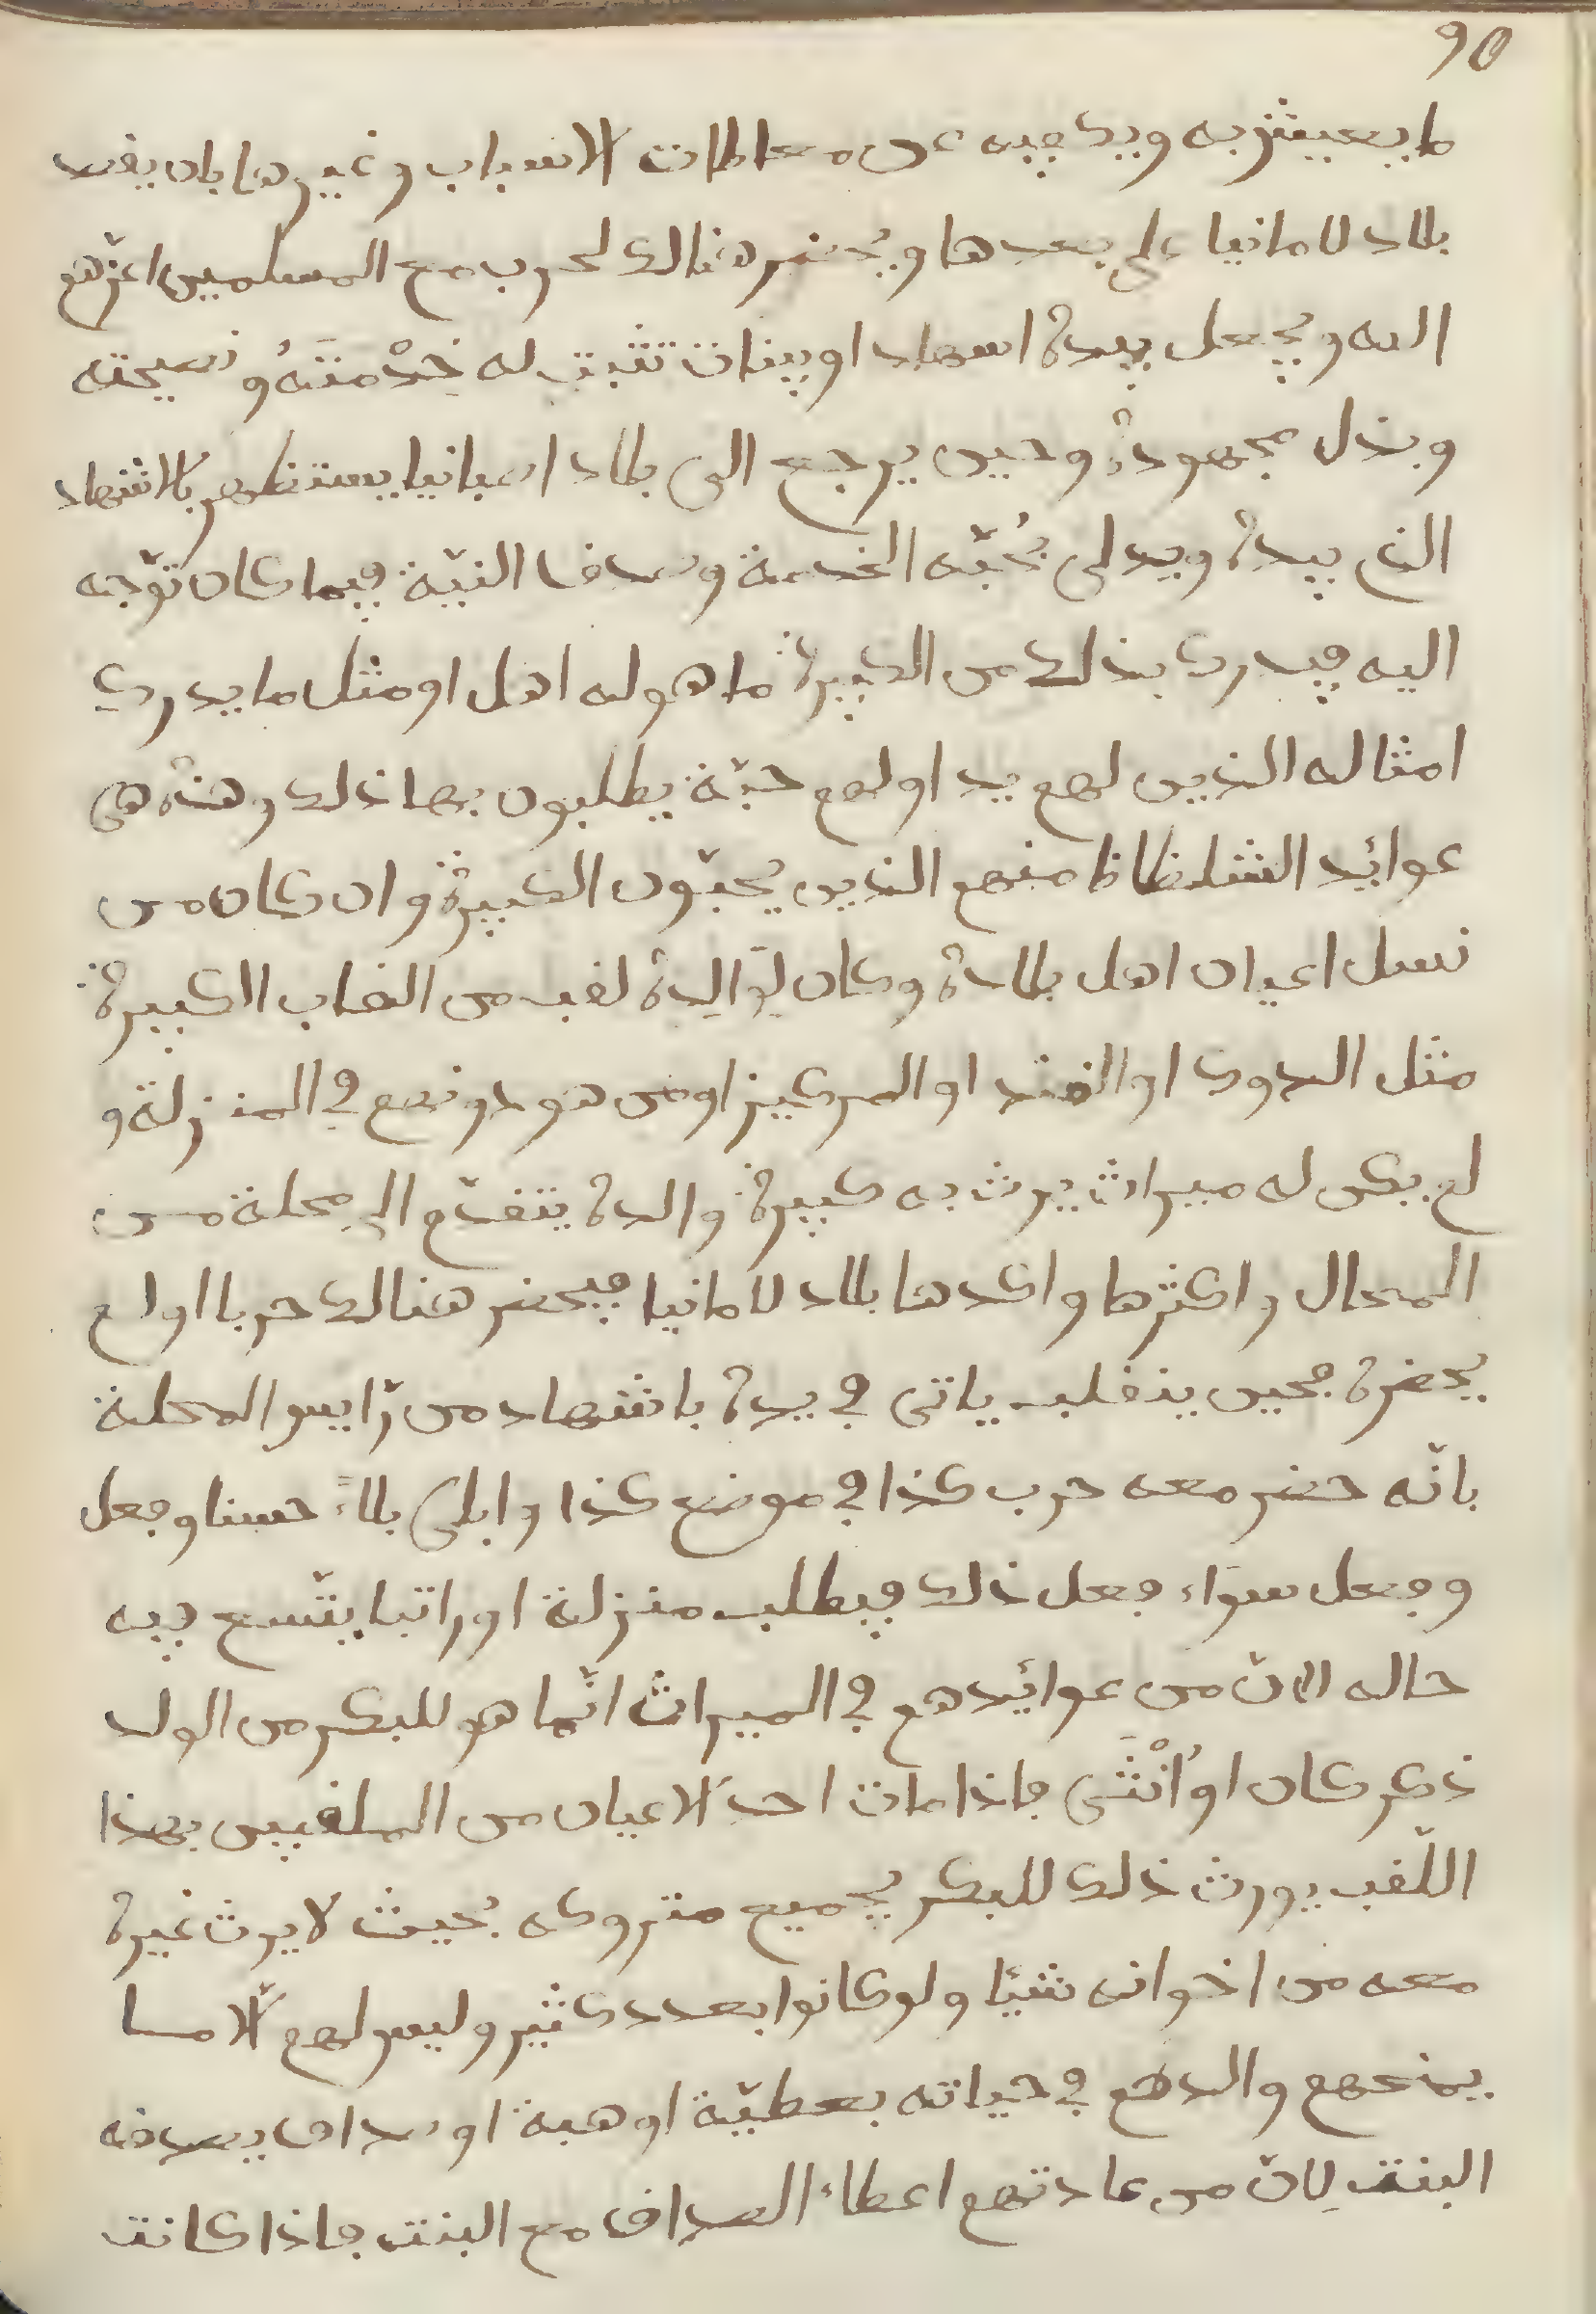 90
ما يعيش به ويكفيه عن معاطات الاسباب وغيرها بان يقصد
بلاد لامانيا على بعدها ويحضر هنالك لحرب مع المسلمين اعزهم
الله ويجعل بيده اشهاد او بينات تثبت له خِدْمَتَهُ ونصيحته
وبذل مجهوده وحين يرجع الى بلاد اصبانيا يستظهر بالاشهاد
الذي بيده ويدلى بحُجّة الخدمة وصدق النيّة فيما كان توّجه
اليه فيدرك بذلك من الكبيرة ما هو له اهل او مثل ما يدرك
امثاله الذين لهم يد او لهم حجّة يطلبون بها ذلك وهذه هى
عوائد الشلظاظ منهم الذين يُحبّون الكبيرة وان كان من
نسل اعيان اهل بلاده وكان لِوَالِدِه لقب من القاب الكبيرة
مثل الدوك او القند او المركيز او من هو دونهم في المنزلة و
لم يكن له ميراث يرث به كبيرة والده يتقدّم الى محلة مـن
المحال واكثرها واكدها بلاد لامانيا فيحضر هنالك حربا او لم
يحضره فحين ينقلب ياتى في يده باشهاد من رّايس المحلة
بانّه حضر معه حرب كذا في موضع كذا وابلى بلاءً حسنا وفعل
وفعل سوَاء فعل ذلك فيطلب منزلة او راتبا يتّسع فيه
حاله لانّ من عوائدهم في الميراث انّما هو للبكر من الولد
ذكر كان اوُ انْثَى فاذا مات احد الاعيان من الملقبين بهذا
اللّقب يورث ذلك للبكر بجميع متروكه بحيث لا يرث غيره
معه من اخوانه شيئا ولو كانوا بعدد كثير وليس لهم الّا مـا
يمنحهم والدهم في حياته بعطيّة او هبة او صداق يصدقه
البنت لِانّ من عادتهم اعطاء الصداق مع البنت فاذا كانت